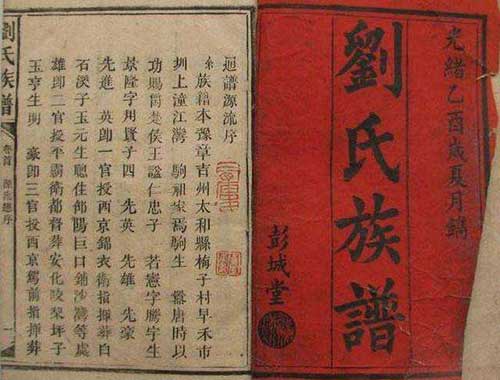 光緒乙酉歲夏月鐫
劉氏族譜
彭城堂
通譜源流序
族籍本豫章吉州太和縣梅子村早禾市
圳上潼江灣 駒祖家焉駒生 唐時以
功賜爵楚侯王諡仁忠子 若憲字騰宇生
景隆字用賢子四 先英 先雄 先豪
先進 英卽一官授西京錦衣衛指揮葬白
石渡子玉元生聰住邵陽巨口鋪沙灣等處
雄卽二官授平霸衛都督葬安化陵梁坪子
玉亨生明 豪卽三官授西京駕前指揮葬
劉氏族譜
卷首
源流總序
一